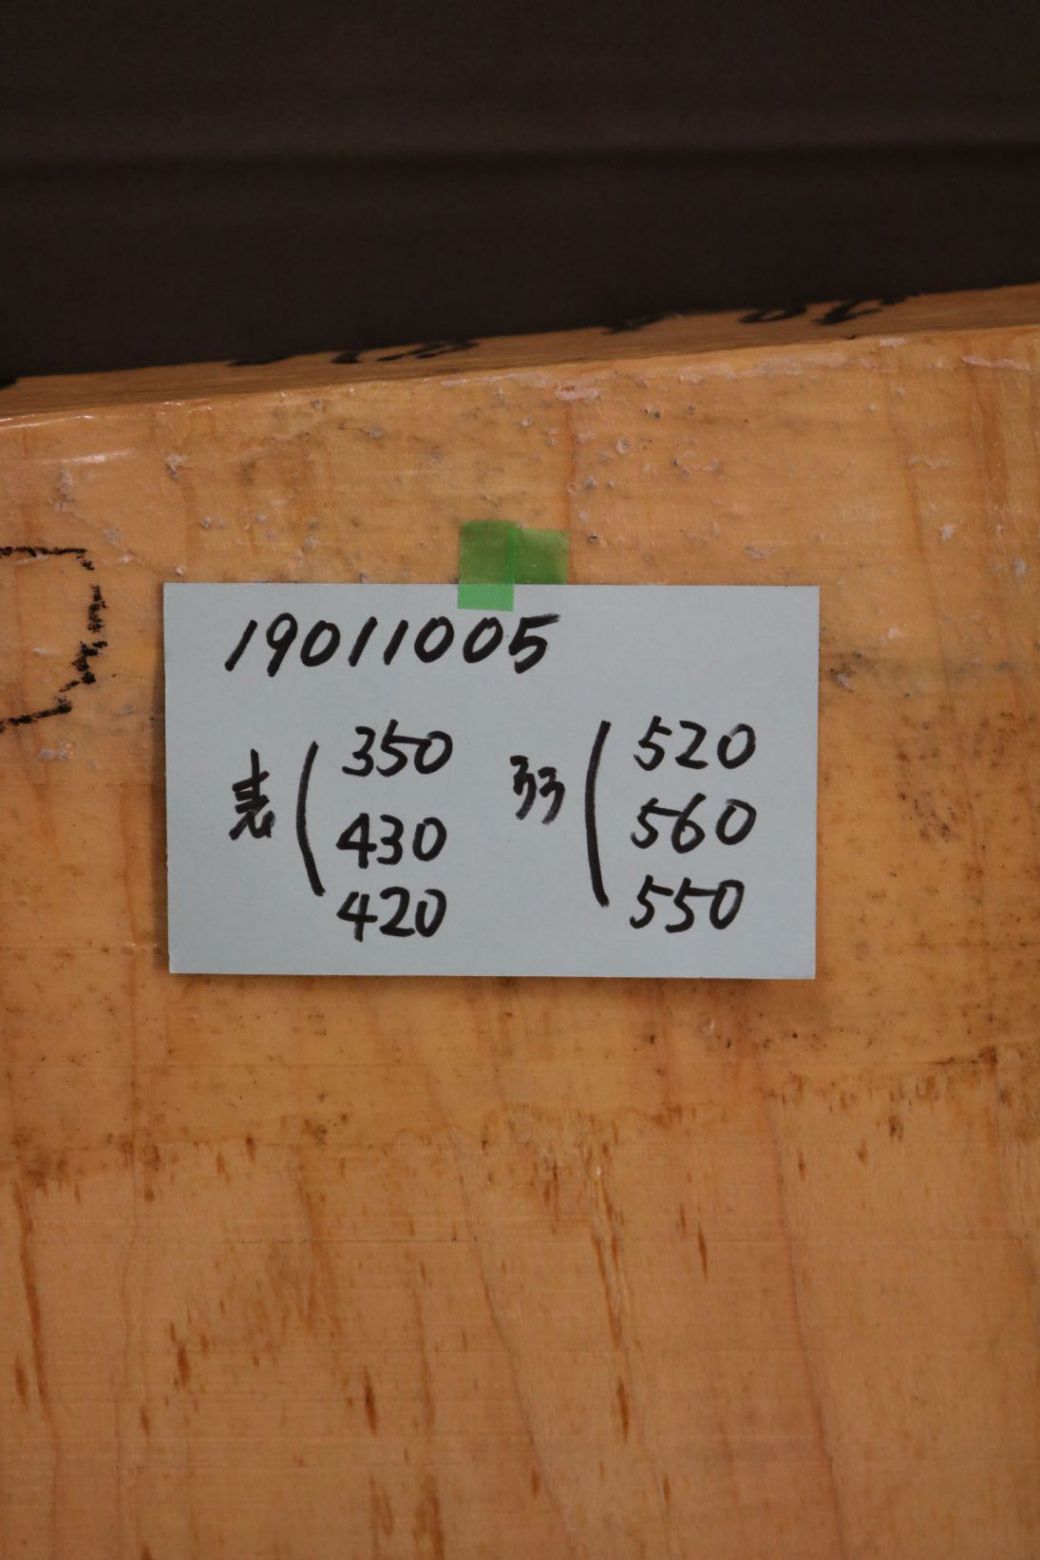 19011005
表 ( 350 430 420
( 520 560 550